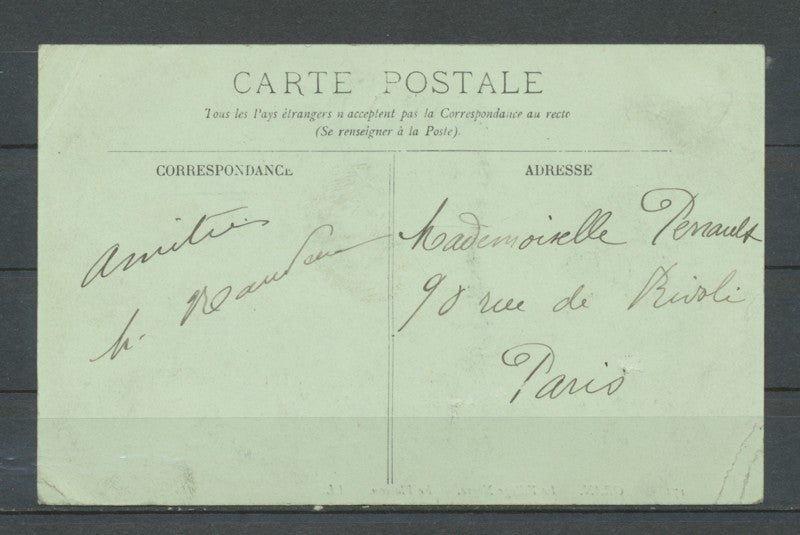 CARTE POSTALE
Tous les Pays étrangers n'acceptent pas la Correspondance au recto
(Se renseigner à la Poste).
CORRESPONDANCE
Amitiés
h.
ADRESSE
Mademoiselle Perrault
90 rue de Rivoli
Paris